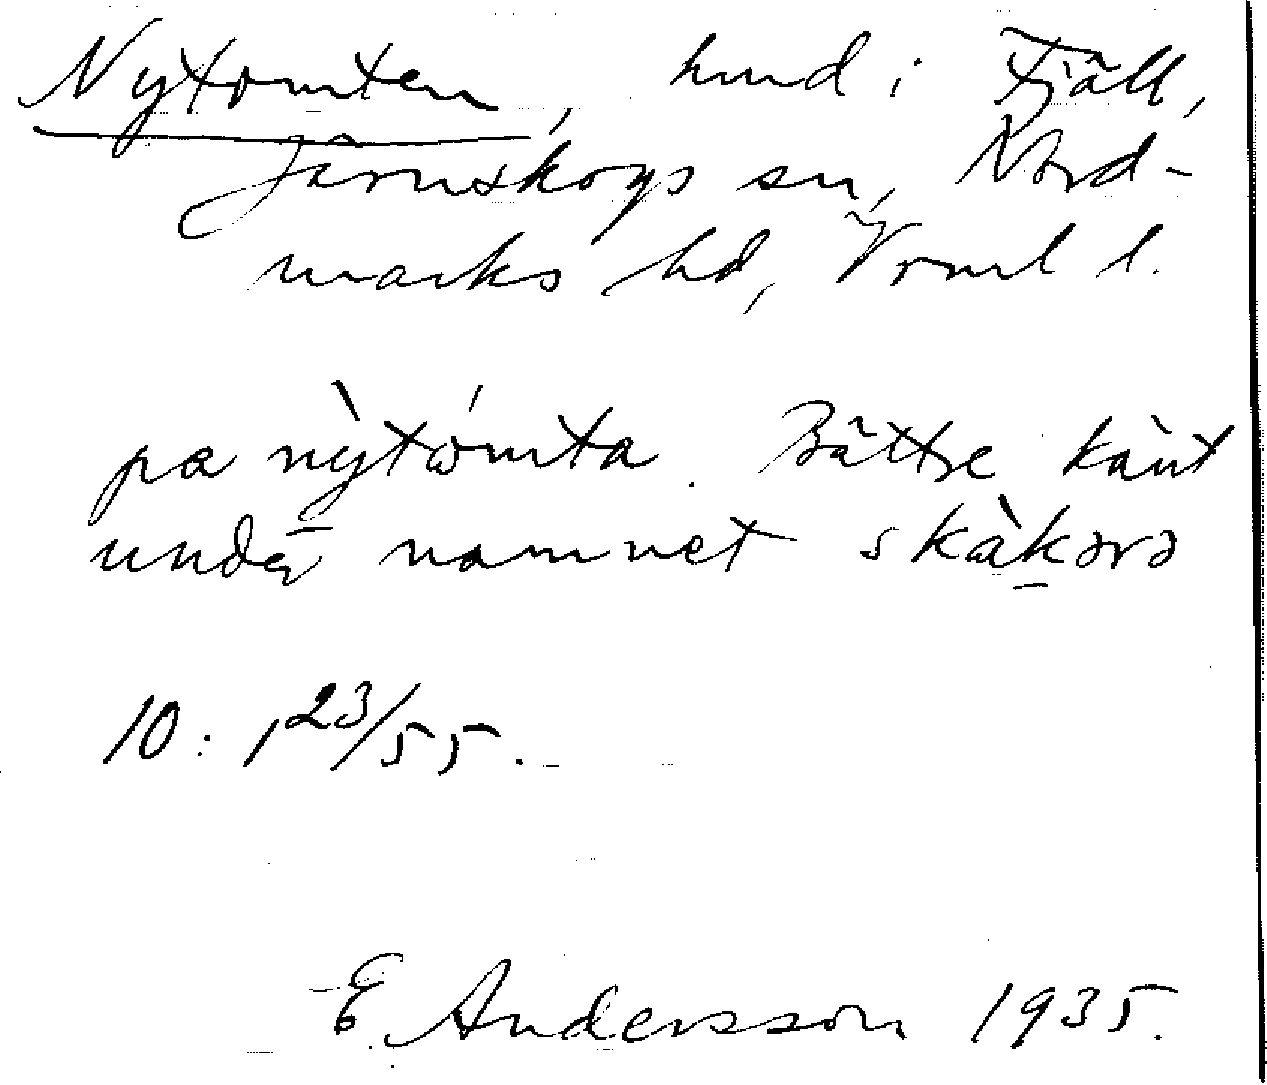 Nytomten, hmd i Fjäll,
Järnskogs sn, Nord-
marks hd, Vrml l.
pa nỳtómta. Bättre känt
under namnet skàkərə
10: 1 23/55.
E. Andersson 1935.